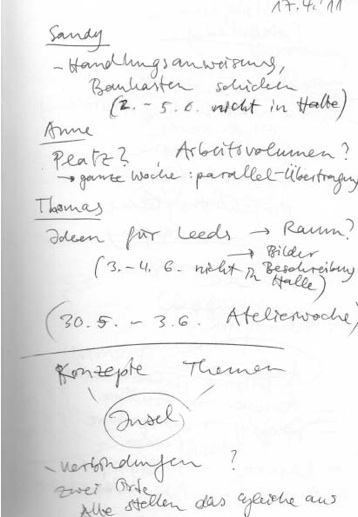 17.4.'11
Sandy
- Handlungsanweisung,
Baukasten schicken
(2. - 5.6. nicht in Halle)
Anne
Platz? , Arbeitsvolumen?
→ ganze Woche: parallel-Übertragung
Thomas
Ideen für Leeds → Raum?
→ Bilder
Beschreibung
(3.-4. 6. nicht in Halle)
(30.5. - 3.6. Atelierwoche)
Konzepte Themen
Insel
- Verbindungen ?
zwei Orte
Alle stellen das gleiche aus